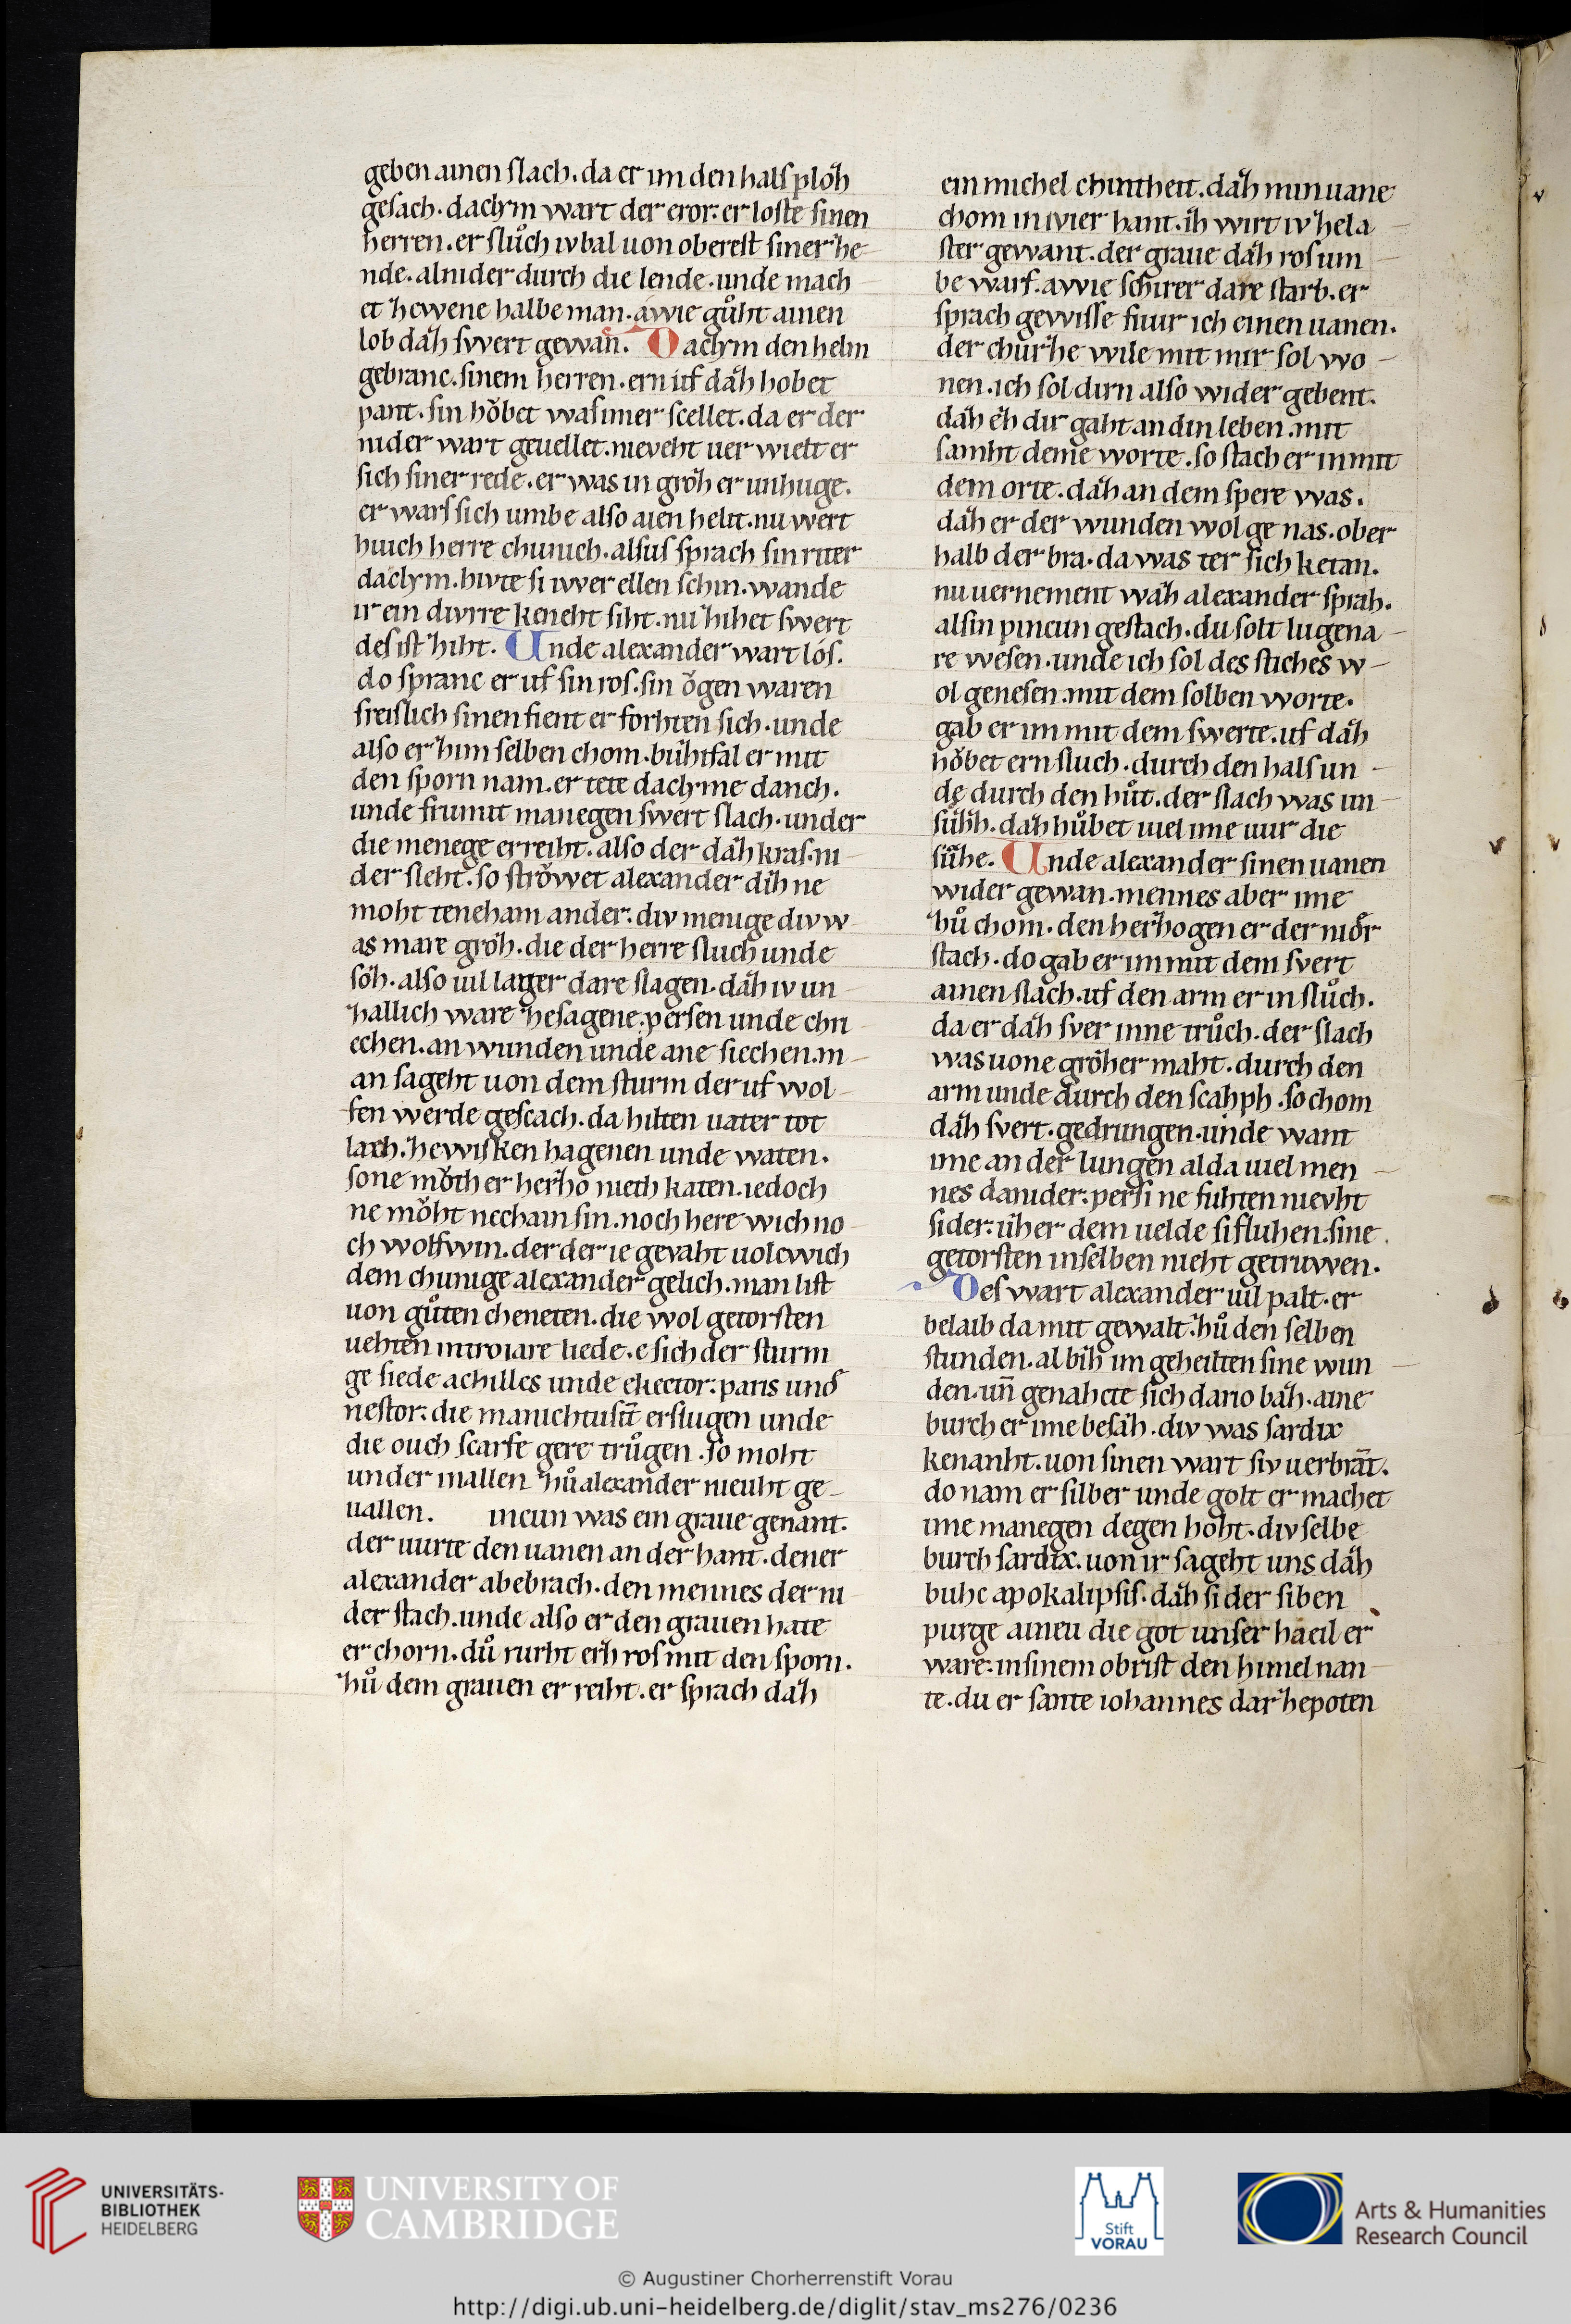 geben ainen slach. da er im den hals plöz
gesach. daclym wart der eror. er loste sinen
herren. er slůch iv bal uon oberest siner ze-
nde. al nider durch die lende. unde mach
et zewene halbe man. awie gůht ainen
lob däz swert gewan. Daclym den helm
gebranc. sinem herren. ern uf däz hobet
pant. sin hŏbet was imer scellet. da er der
nider wart geuellet. nieveht uer wielt er
sich siner rede. er was in gröz er unhuge.
er warf sich umbe also aien helt. nu wert
huich herre chunich. alsus sprach sin riter
daclym. hivte si ivver ellen schin. wande
ir ein divrre keneht siht. nu zihet swert
des ist ziht. Unde alexander wart lós.
do spranc er uf sin ros. sin ŏgen waren
freislich sinen fient er forhten sich. unde
also er zim selben chom. buzifal er mit
den sporn nam. er tete daclyme danch.
unde frumit manegen swert slach. under
die menege er reiht. also der däz kras. ni
der sleht. so strŏwet alexander diz ne
moht teneham ander. div menige div w
as mare gröz. die der herre sluch unde
söz. also uil lager dare slagen. däz iv un
zallich ware zesagene. persen unde chri
echen. an wunden unde ane siechen. m
an sageht uon dem sturm der uf wol
fen werde gescach. da hilten uater tot
lach. zewisken hagenen unde waten.
sone mŏth er herzŏ nieth katen. iedoch
ne mŏht nechain sin. noch here wich no
ch wolfwin. der der ie gevaht uolcwich
dem chunige alexander gelich. man list
uon gůten cheneten. die wol getorsten
uehten introiare liede. e sich der sturm
ge siede achilles unde ekector. paris unđ
nestor. die manich tusūt erslugen unde
die ouch scarfe gere trůgen. so moht
under in allen zů alexander nieuht ge-
uallen. incun was ein graue genant.
der uurte den uanen an der hant. dener
alexander abebrach. den mennes der ni
der stach. unde also er den grauen hate
er chorn. dů rurht erz ros mit den sporn.
zů dem grauen er reiht. er sprach däz
ein michel chintheit. däz min uane
chom in ivier hant. ih wirt iv zela
ster gewant. der graue däz ros um
be warf. awie schirer dare starb. er
sprach gewisse fuur ich einen uanen.
der churze wile mit mir sol wo
nen. ich sol dirn also wider gebent.
däz ez dir gaht an din leben. mit
samht deme worte. so stach er in mit
dem orte. däz an dem spere was.
däz er der wunden wol ge nas. ober
halb der bra. da was ter sich ketan.
nu uernement wäz alexander sprah.
als in pincun gestach. du solt lugena
re wesen. unde ich sol des stiches w
ol genesen. mit dem solben worte.
gab er im mit dem swerte. uf däz
hŏbet ern sluch. durch den hals un
de durch den hůt. der slach was un
sůzh. däz hůbet uiel ime uur die
fůzhe. Unde alexander sinen uanen
wider gewan. mennes aber ime
zů chom. den herzogen er der niđr
stach. do gab er im mit dem svert
ainen slach. uf den arm er in slůch.
da er däz sver inne trůch. der slach
was uone grözer maht. durch den
arm unde durch den scahph. so chom
däz svert. gedrungen. unde want
ime an der lungen al da uiel men
nes danider. persi ne fuhten nievht
sider. uzer dem uelde si fluhen. sine
getorsten in selben nieht getruwen.
Des wart alexander uil palt. er
belaib da mit gewalt. zů den selben
stunden. al biz im geheilten sine wun
den. uñ genahcte sich dario bäz. aine
burch er ime besäz. div was sardix
kenanht. uon sinen wart siv uerbrāt.
do nam er silber unde golt er machet
ime manegen degen holt. div selbe
burch sardix. uon ir sageht uns däz
buhc apokalipsis. däz si der siben
purge aineu die got unser haeil er
ware. in sinem obrist den himel nan
te. du er sante iohannes dar zepoten
UNIVERSITÄTS-
BIBLIOTHEK
HEIDELBERG
UNIVERSITY OF
CAMBRIDGE
Stift
VORAU
Arts & Humanities
Research Council
© Augustiner Chorherrenstift Vorau
http://digi.ub.uni-heidelberg.de/diglit/stav_ms276/0236